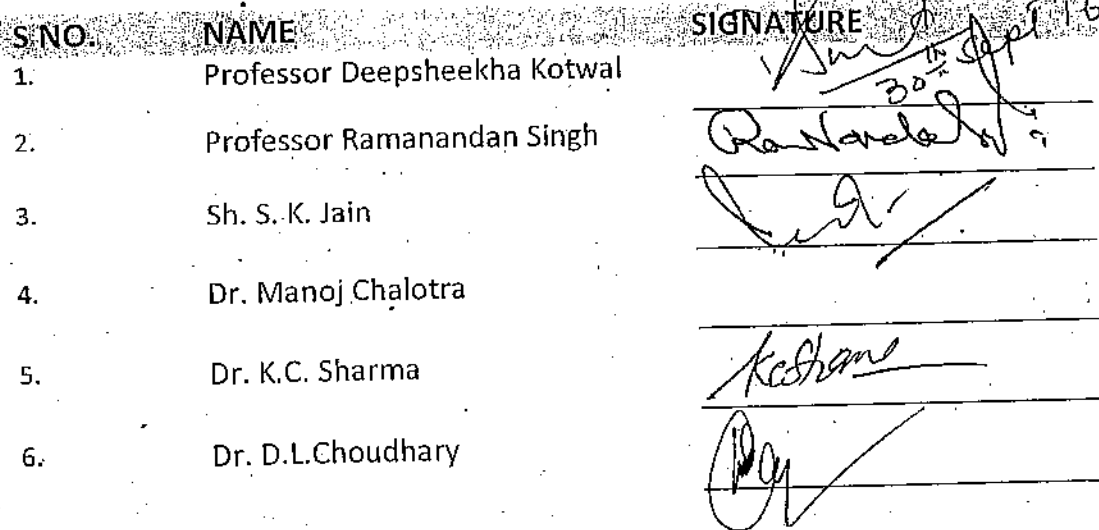 S NO. NAME SIGNATURE
1. Professor Deepsheekha Kotwal
30th Sept 16
2. Professor Ramanandan Singh
3. Sh. S. K. Jain
4. Dr. Manoj Chalotra
5. Dr. K.C. Sharma KcSharma
6. Dr. D.L.Choudhary